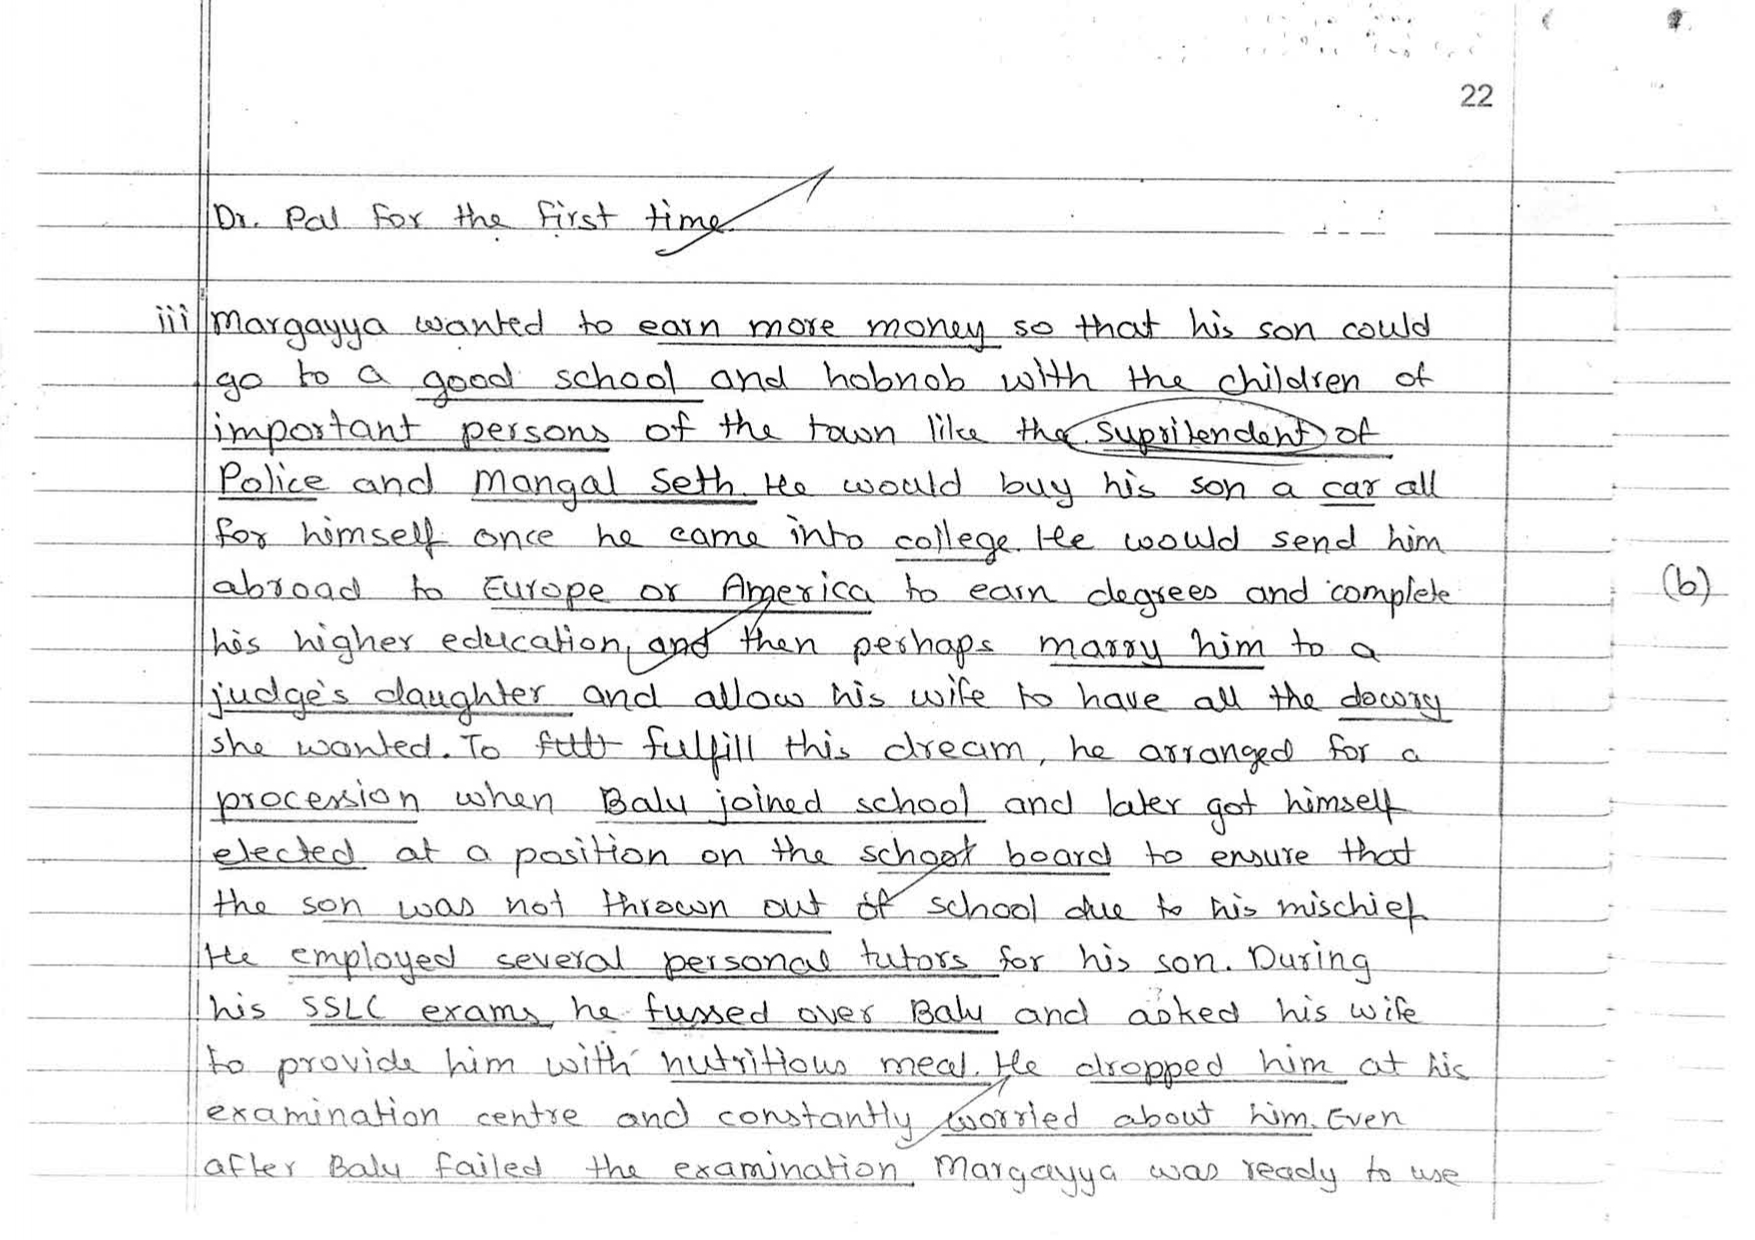 22
Dr. Pal for the first time.
iii Margayya wanted to earn more money so that his son could
go to a good school and hobnob with the children of
important persons of the town like the Supritendent of
Police and Mangal Seth. He would buy his son a car all
for himself once he came into college. He would send him
abroad to Europe or America to earn degrees and complete
(b)
his higher education, and then perhaps marry him to a
judge's daughter and allow his wife to have all the dowry
she wanted. To fulfill this dream, he arranged for a
procession when Balu joined school and later got himself
elected at a position on the school board to ensure that
the son was not thrown out of school due to his mischief.
He employed several personal tutors for his son. During
his SSLC exams, he fussed over Balu and asked his wife
to provide him with nutritious meal. He dropped him at his
examination centre and constantly worried about him. Even
after Balu failed the examination, Margayya was ready to use